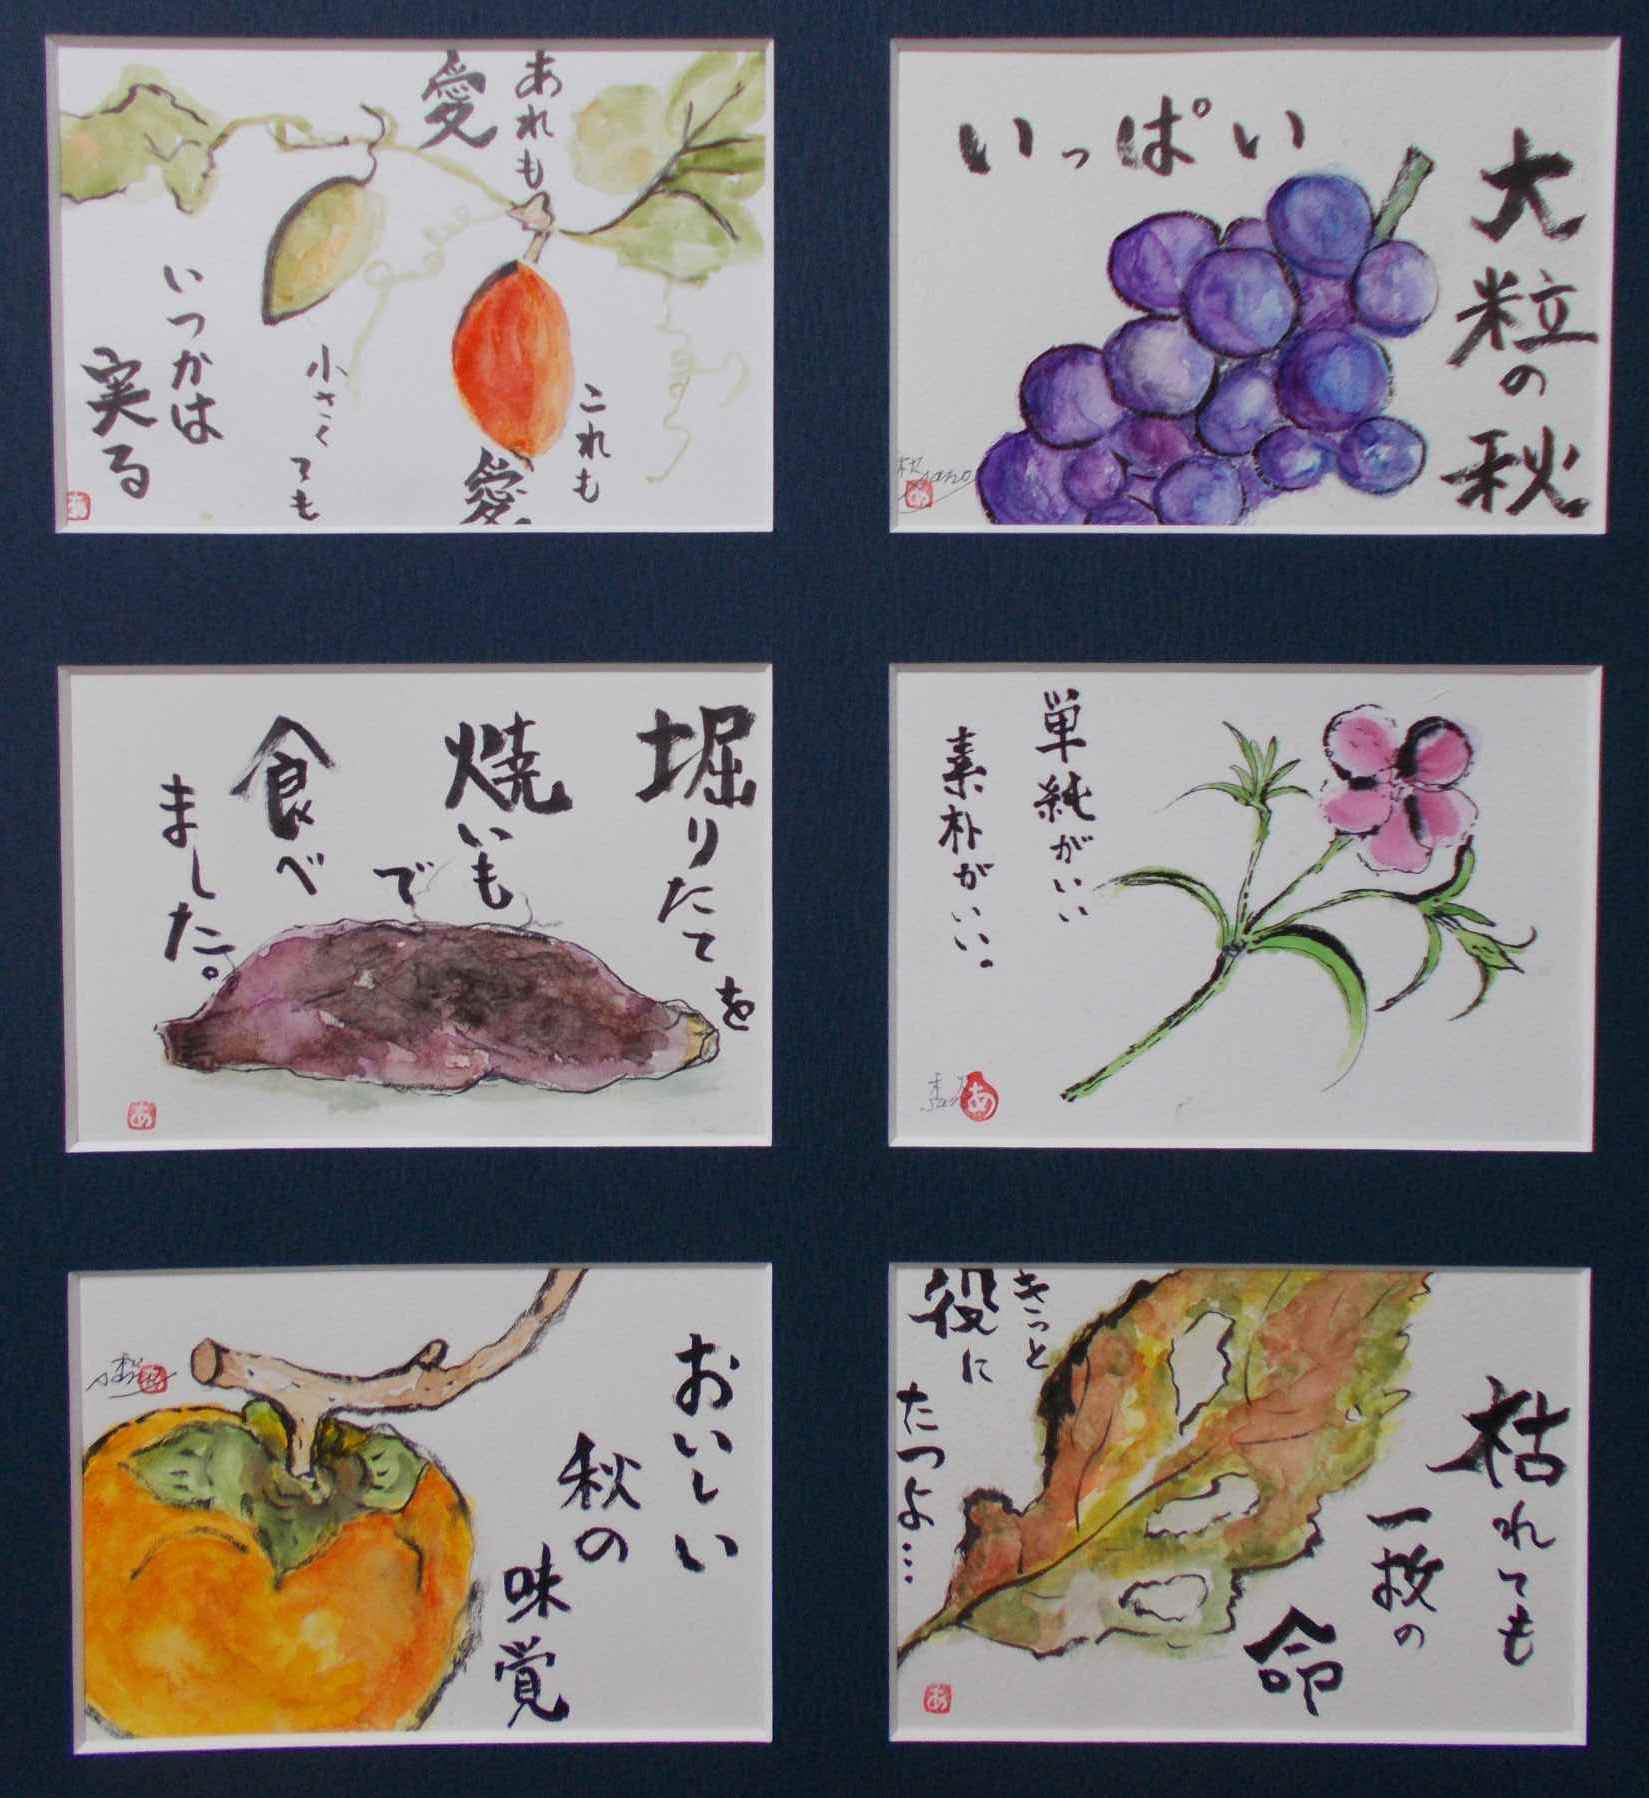 あれも
愛
これも
愛
小さくても
いつかは
実る
あ
大粒の秋
いっぱい
sano
あ
堀りたてを
焼いも
で
食べ
ました。
あ
単純がいい
素朴がいい。
あ
おいしい
秋の
味覚
枯れても
一枚の
命
きっと
役に
たつよ…
あ